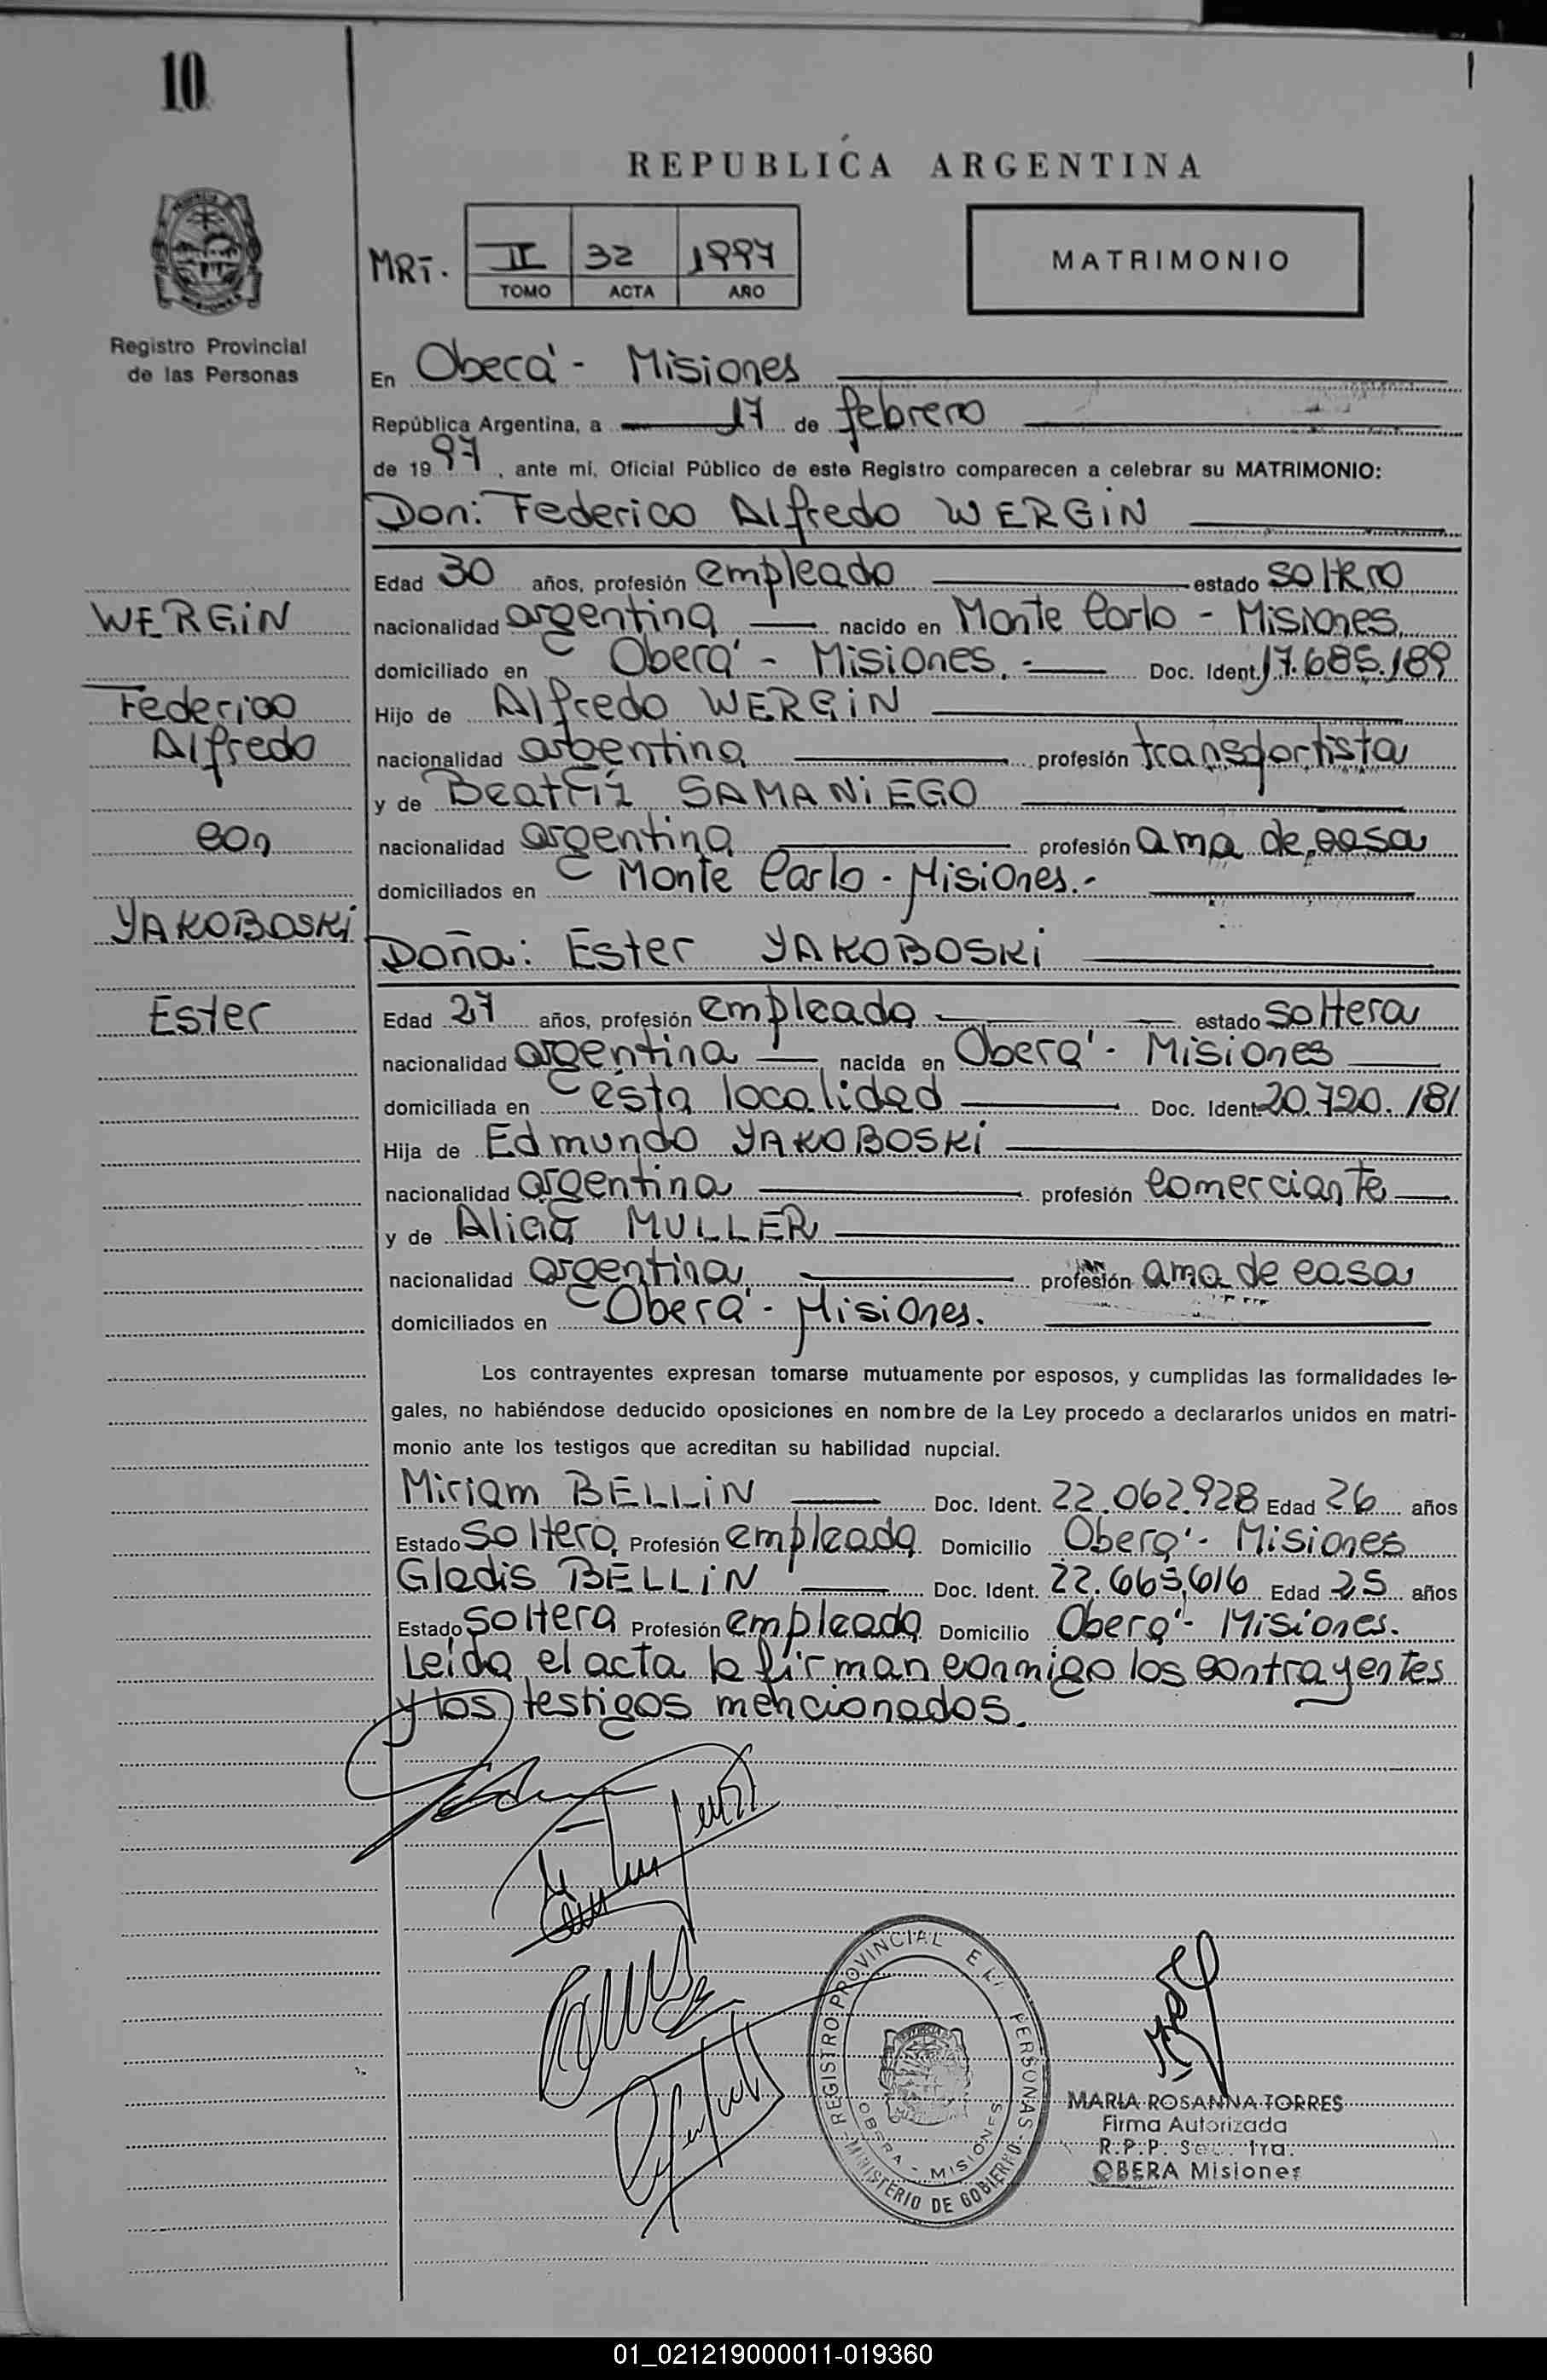 10
REPUBLICA ARGENTINA
MRT. II 32 1997
TOMO ACTA AÑO
MATRIMONIO
Registro Provincial
de las Personas
En Oberá - Misiones
República Argentina, a 17 de febrero
de 1997, ante mi, Oficial Público de este Registro comparecen a celebrar su MATRIMONIO:
Don: Federico Alfredo WERGIN
Edad 30 años, profesión empleado estado soltero
WERGIN
nacionalidad argentina nacido en Monte Carlo - Misiones
domiciliado en Oberá - Misiones.- Doc. Ident. 17.685.189
Federico
Hijo de Alfredo WERGIN
Alfredo
nacionalidad argentina profesión transportista
y de Beatriz SAMANIEGO
con
nacionalidad argentina profesión ama de casa
domiciliados en Monte Carlo - Misiones.-
YAKOBOSKI
Doña: Ester YAKOBOSKI
Ester
Edad 27 años, profesión empleada estado soltera
nacionalidad argentina nacida en Oberá - Misiones
domiciliada en ésta localidad Doc. Ident 20.720.181
Hija de Edmundo YAKOBOSKI
nacionalidad argentina profesión comerciante
y de Alicia MULLER
nacionalidad argentina profesión ama de casa
domiciliados en Oberá - Misiones.
Los contrayentes expresan tomarse mutuamente por esposos, y cumplidas las formalidades le-
gales, no habiéndose deducido oposiciones en nombre de la Ley procedo a declararlos unidos en matri-
monio ante los testigos que acreditan su habilidad nupcial.
Miriam BELLIN Doc. Ident. 22.062.928 Edad 26 años
Estado Soltera Profesión empleada Domicilio Oberá - Misiones
Gladis BELLIN Doc. Ident. 22.665.616 Edad 25 años
Estado Soltera Profesión empleada Domicilio Oberá - Misiones.
Leída el acta la firman conmigo los contrayentes
y los testigos mencionados.
REGISTRO PROVINCIAL PERSONAS
OBERA - MISIONES
MINISTERIO DE GOBIERNO
MARIA ROSANNA TORRES
Firma Autorizada
R.P.P.
OBERA Misiones
01_021219000011-019360